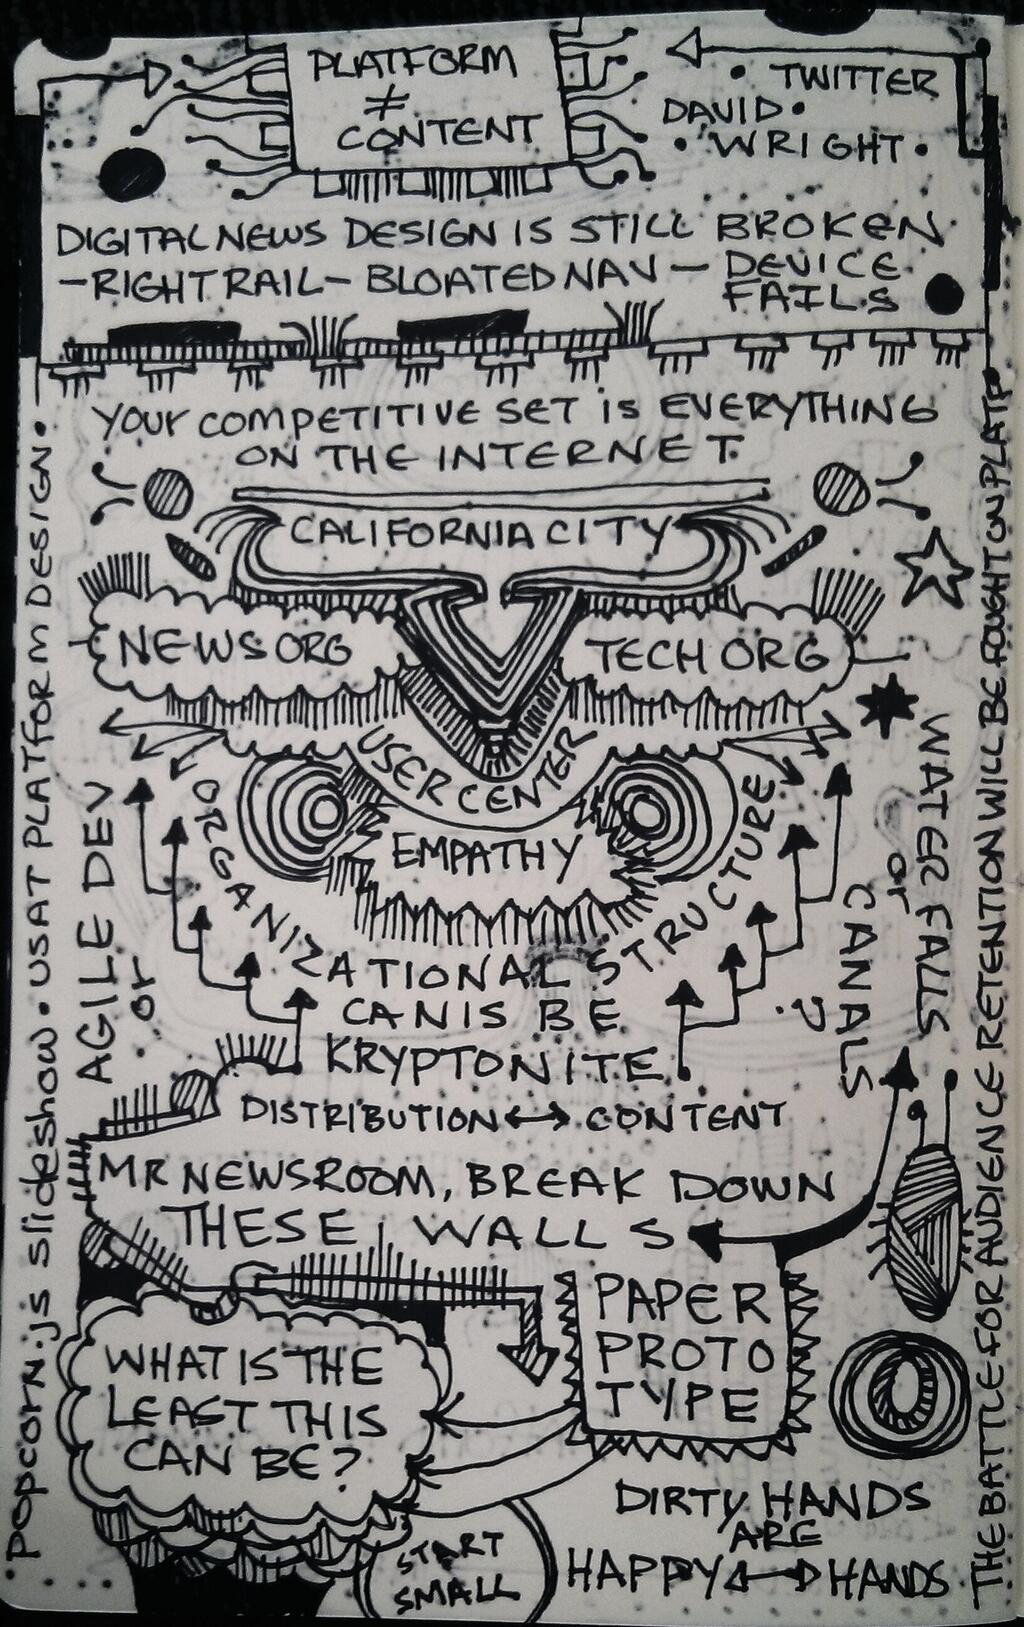 PLATFORM
≠
CONTENT
• TWITTER
DAVID •
• WRIGHT •
DIGITAL NEWS DESIGN IS STILL BROKEN
- RIGHT RAIL - BLOATED NAV - DEVICE
FAILS
YOUR COMPETITIVE SET IS EVERYTHING
ON THE INTERNET.
CALIFORNIA CITY
NEWS ORG
TECH ORG
USER CENTER
EMPATHY
ORGANIZATIONAL STRUCTURE
CAN IS BE
KRYPTONITE
AGILE DEV
or
WATER FALLS
or
CANALS
DISTRIBUTION ↔ CONTENT
MR NEWSROOM, BREAK DOWN
THESE WALLS
PAPER
PROTO
TYPE
WHAT IS THE
LEAST THIS
CAN BE?
START
SMALL
DIRTY HANDS
ARE
HAPPY ↔ HANDS
popcorn.js slideshow • USAT PLATFORM DESIGN •
THE BATTLE FOR AUDIENCE RETENTION WILL BE FOUGHT ON PLATF